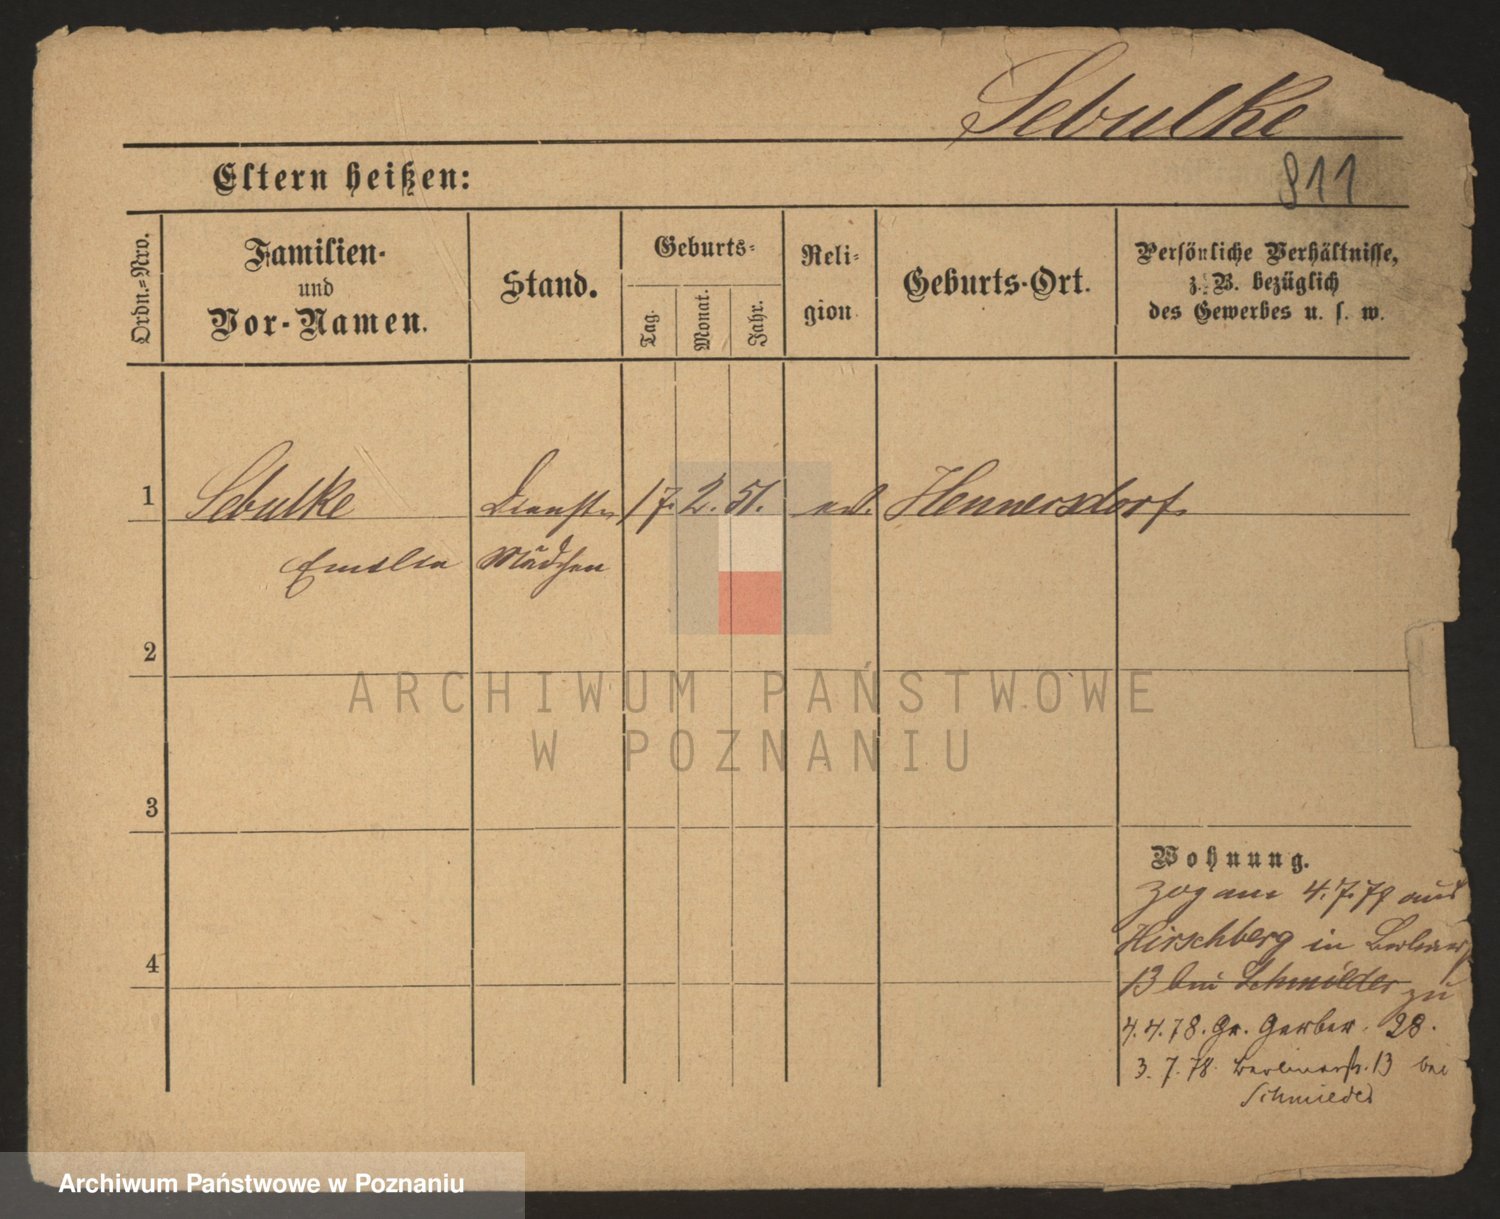 Sebulke
Eltern heißen:
811
Ordn.=Nro.
Familien-
und
Vor-Namen.
Stand.
Geburts-
Tag.
Monat.
Jahr.
Reli-
gion
Geburts-Ort.
Persönliche Verhältnisse,
z. B. bezüglich
des Gewerbes u. s. w.
1
Sebulke
Dienst
17. 2. 51.
Hennersdorf
Emilie
Mädchen
2
ARCHIWUM PAŃSTWOWE
W POZNANIU
3
Wohnung.
zog am 4.7.77 aus
Hirschberg in Berliner
4
13 bei Schmieder zu
4.4.78. Gr. Gerber. 28.
3. 7. 78 Berlinerstr. 13 bei
Schmieder
Archiwum Państwowe w Poznaniu